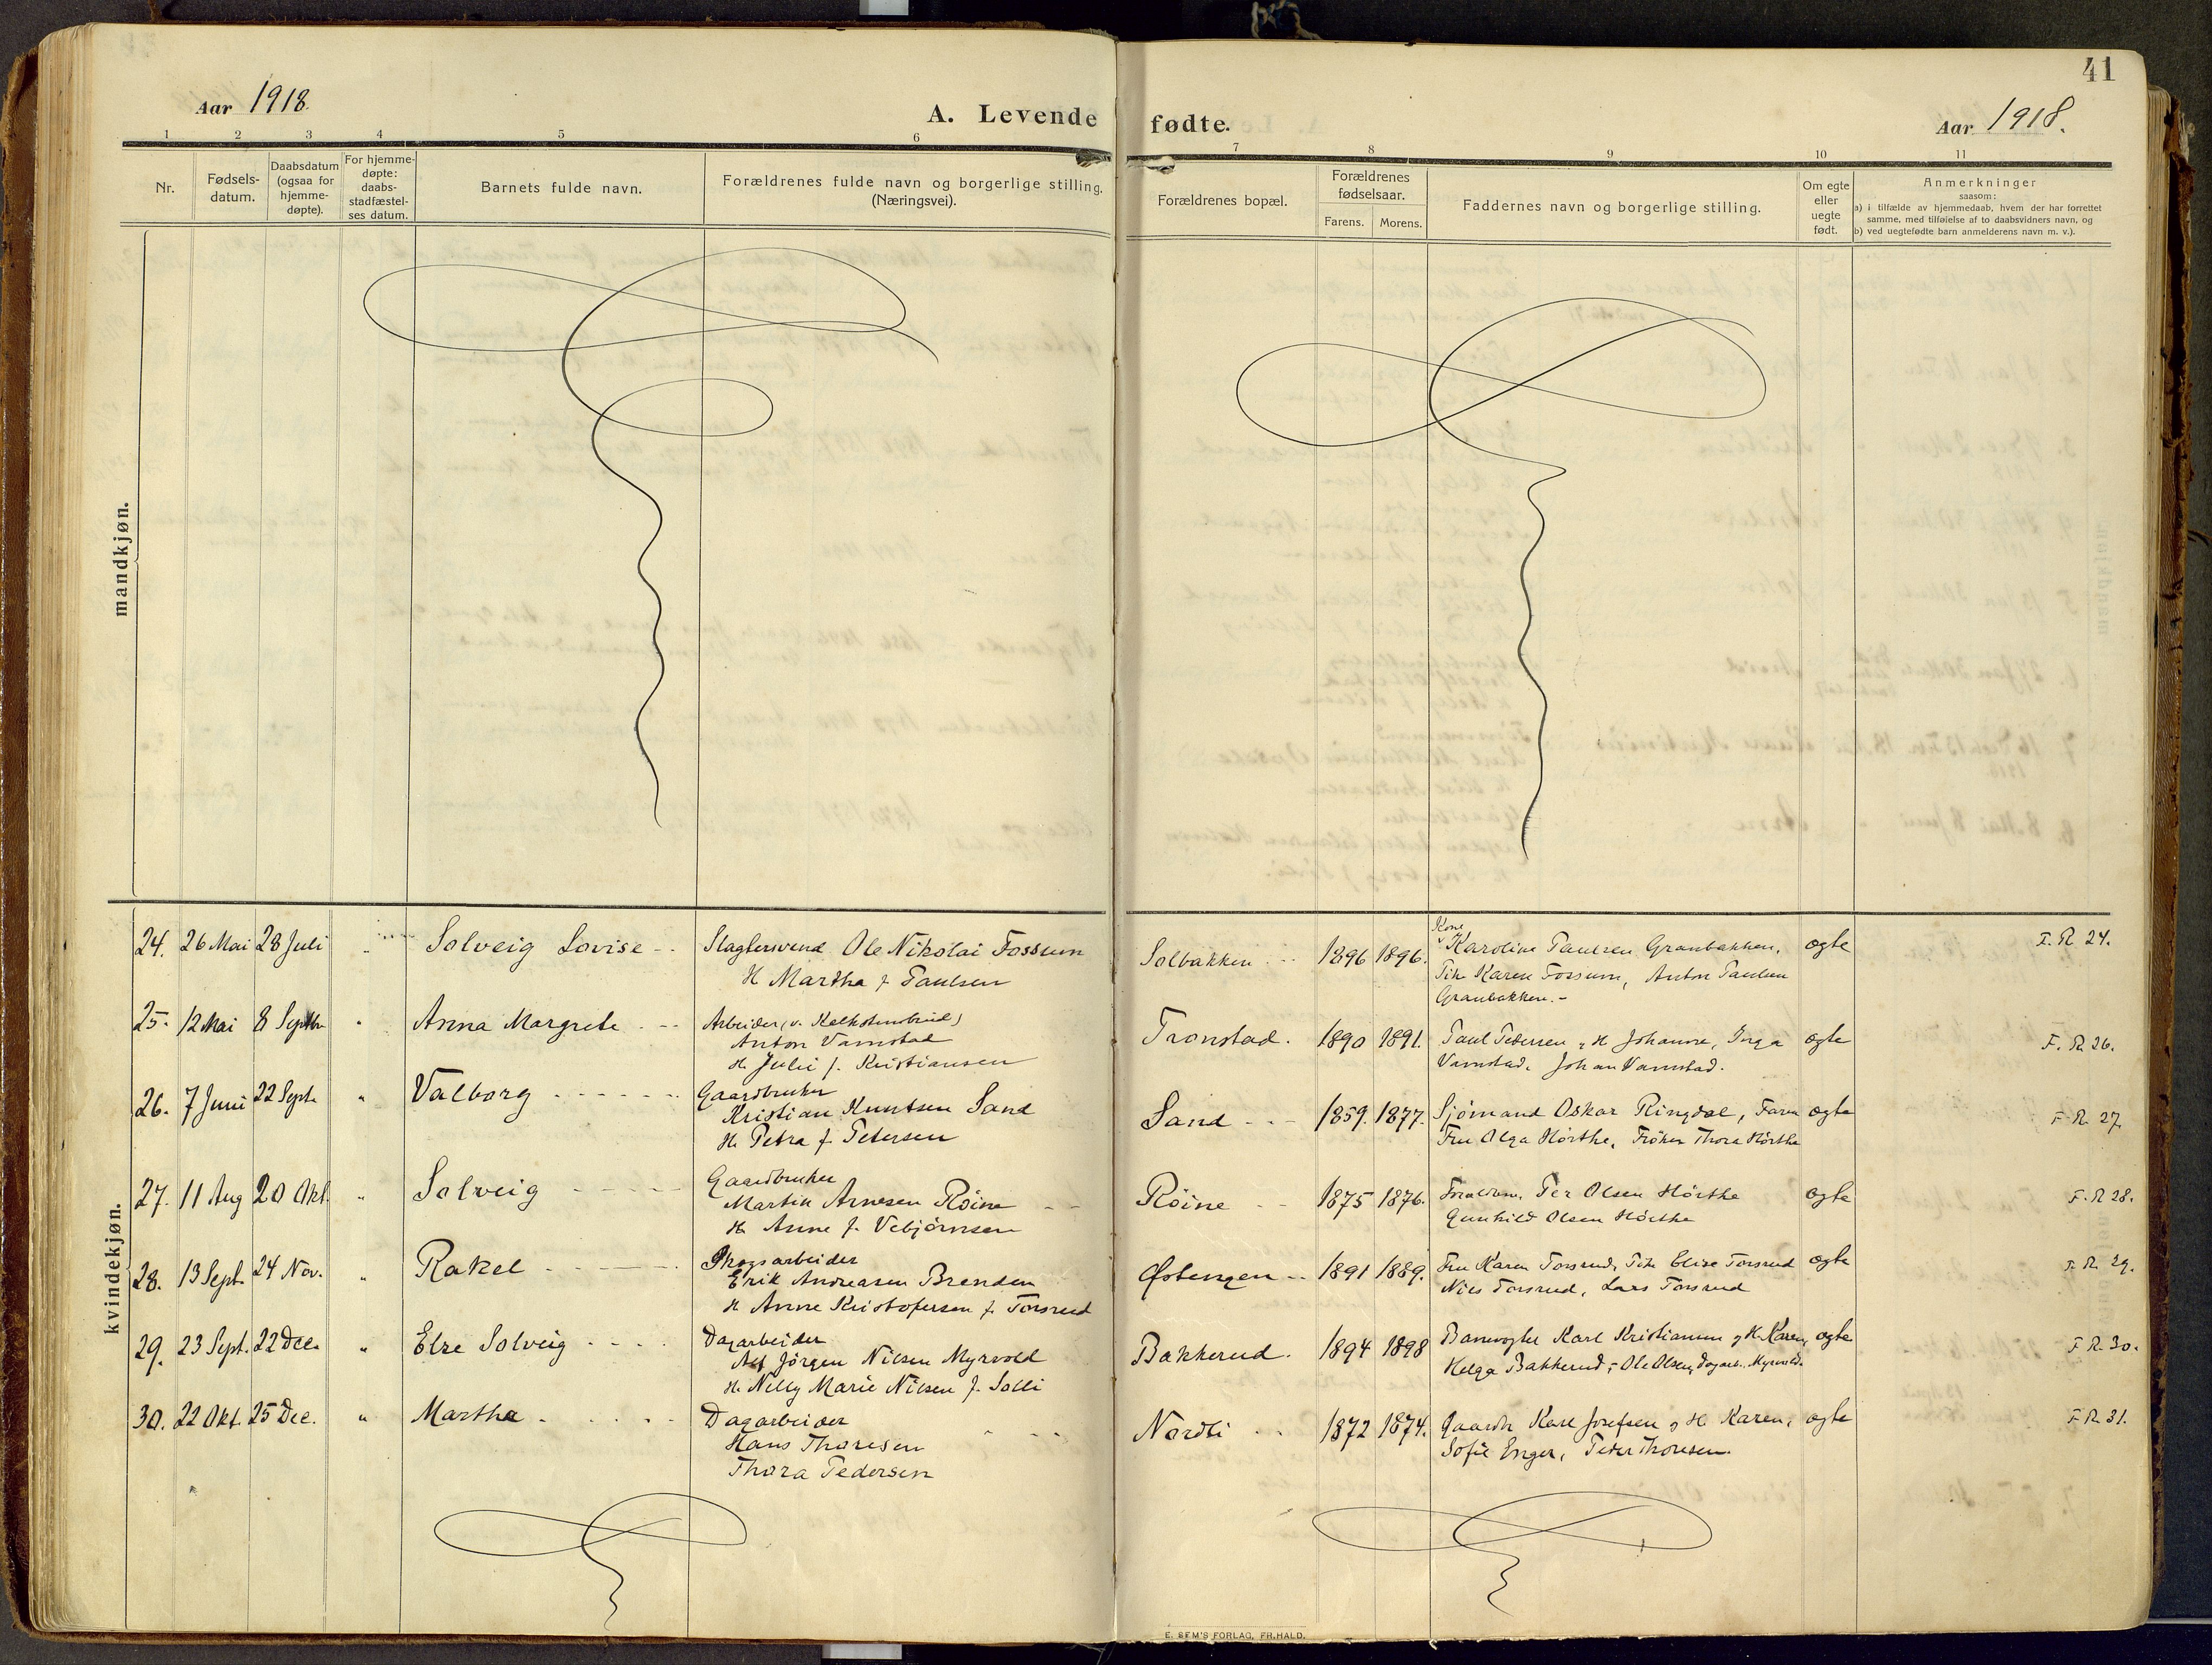 41
Aar 1918.
A. Levende fødte.
Aar 1918.
1 2 3 4 5 6 7 8 9 10 11
Nr.
Fødsels-
datum.
Daabsdatum
(ogsaa for
hjemme-
døpte).
For hjemme-
døpte:
daabs-
stadfæstel-
ses datum.
Barnets fulde navn.
Forældrenes fulde navn og borgerlige stilling.
(Næringsvei).
Forældrenes bopæl.
Forældrenes
fødselsaar.
Farens. Morens.
Faddernes navn og borgerlige stilling.
Om egte
eller
uegte
født.
Anmerkninger
saasom:
a) i tilfælde av hjemmedaab, hvem der har forrettet
samme, med tilføielse af to daabsvidners navn, og
b) ved uegtefødte barn anmelderens navn m. v.).
mandkjøn.
kvindekjøn.
24. 26 Mai 28 Juli " Solveig Lovise Slagtersvend Ole Nikolai Fossum
H Martha f Paulsen
Solbakken 1896 1896.
Kone
Karoline Paulsen Granbakken,
Pike Karen Fossum, Anton Paulsen
Granbakken.-
egte F. R. 24.
25. 12 Mai 8 Septbr " Anna Margrete Arbeider (v. Kalkstensbrud)
Anton Vamstad
H. Julie f. Kristiansen
Tronstad. 1890 1891.
Paul Petersen, H Johanne, Inga
Vamstad, Johan Vamstad.
egte F. R. 26.
26. 7 Juni 22 Sept. " Valborg Gaardbruker
Kristian Knutsen Sand
H. Petra f. Petersen
Sand 1859. 1877.
Sjømand Oskar Ringdal, Faren
Fru Olga Hörthe, Fröken Thora Hörthe
egte F. R. 27.
27. 11 Aug 20 Okt. " Solveig Gaardbruker
Martin Arnesen Röine
H. Anne f. Vebjörnsen
Röine 1875 1876.
Foraldren, Per Olsen Hörthe
Gunhild Olsen Hörthe
egte F. R 28.
28. 13 Sept. 24 Nov. " Rakel Skogsarbeider
Erik Andreasen Brenden
H Anne Kristofersen f. Torsrud
Østengen 1891 1889.
Fru Karen Torsrud, Pike Elise Torsrud
Nils Torsrud, Lars Torsrud
egte F. R. 29.
29. 23 Sept. 22 Dec. " Else Solveig Dagarbeider
Alf Jörgen Nilsen Myrvold
H. Nelly Marie Nilsen f. Solli
Bakkerud. 1894 1898
Banevogter Karl Kristiansen, H. Karen,
Helga Bakkerud, Ole Olsen, Dagarb. Myrvold.
egte F R. 30.
30. 22 Okt. 25 Dec. " Martha Dagarbeider
Hans Thoresen
Thora Pedersen
Nordli 1872 1874.
Gaardbr Karl Josefsen, H Karen,
Sofie Enger, Peder Thoresen.
egte F. R. 31.
E. SEM'S FORLAG, FR.HALD.